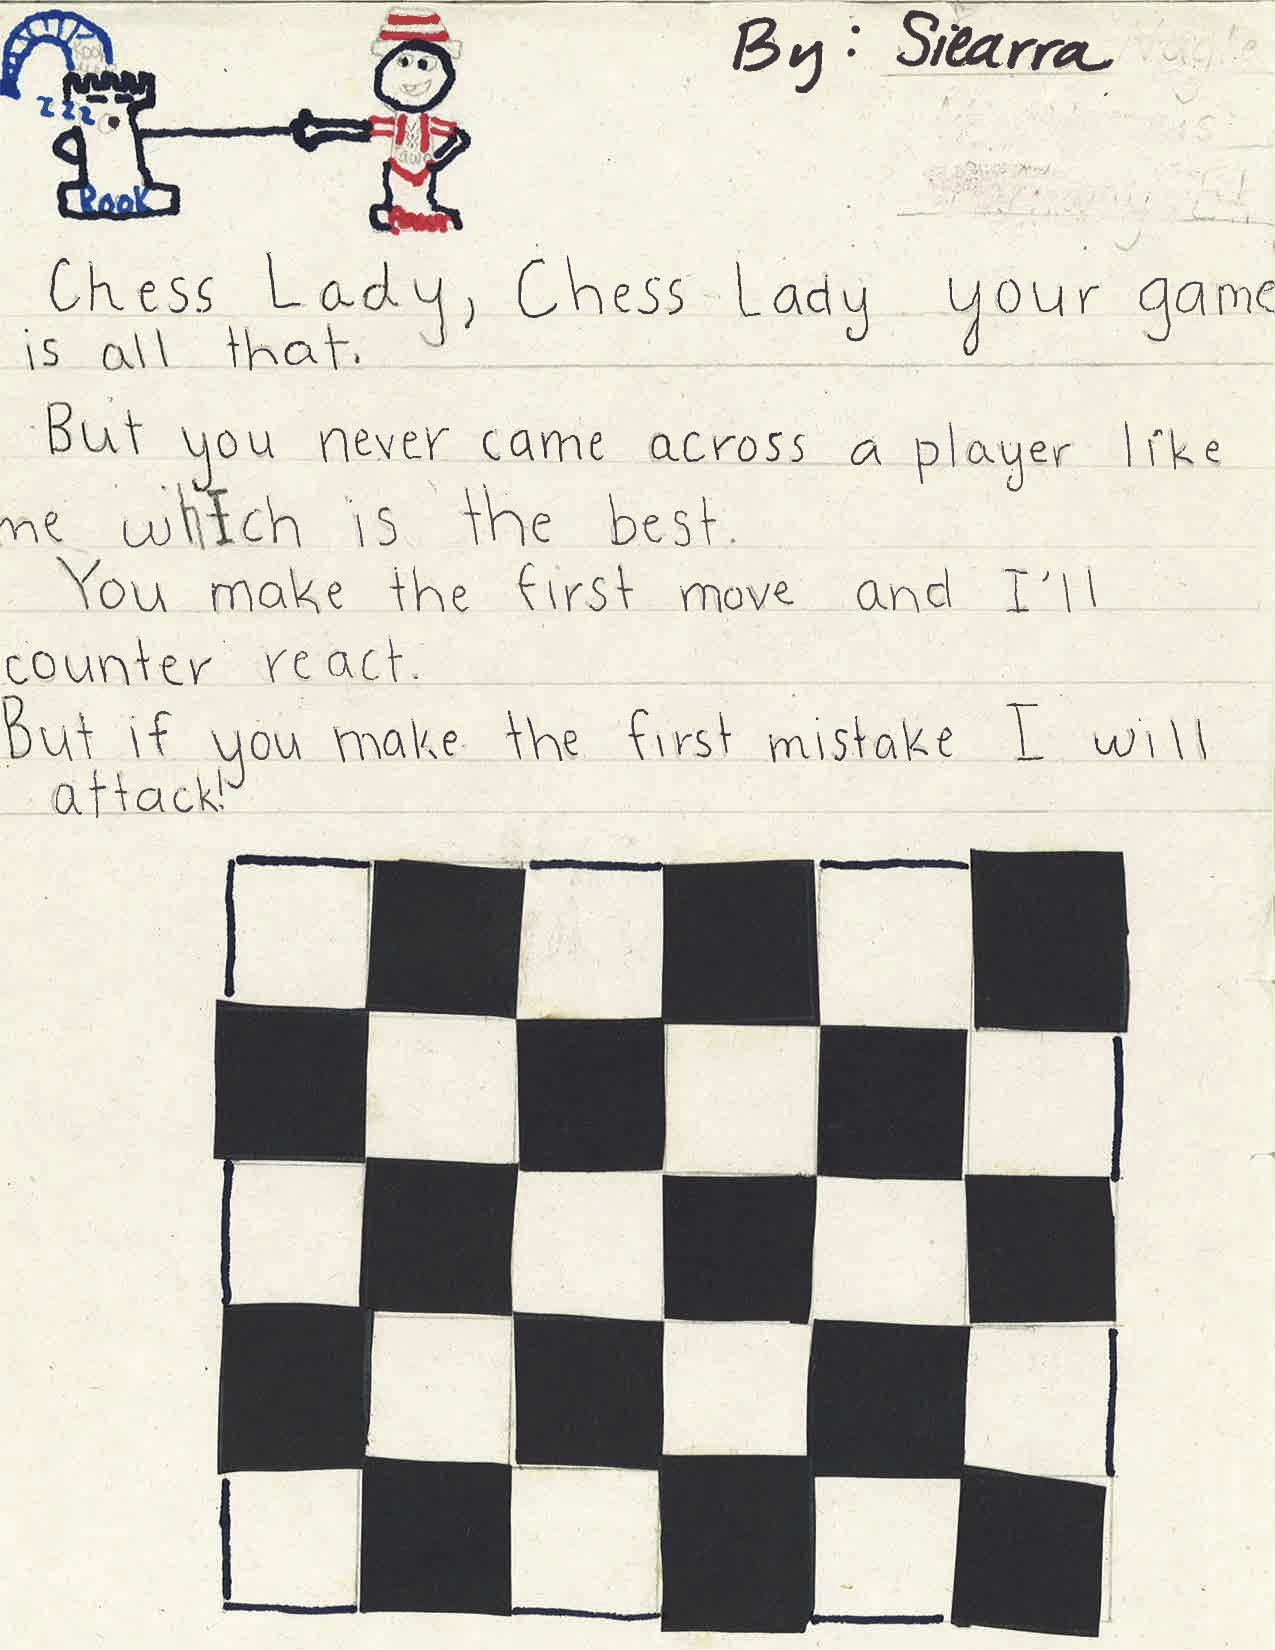 By: Siearra
zzz
ROOK
Chess Lady, Chess Lady your game
is all that.
But you never came across a player like
me which is the best.
You make the first move and I'll
counter react.
But if you make the first mistake I will
attack!